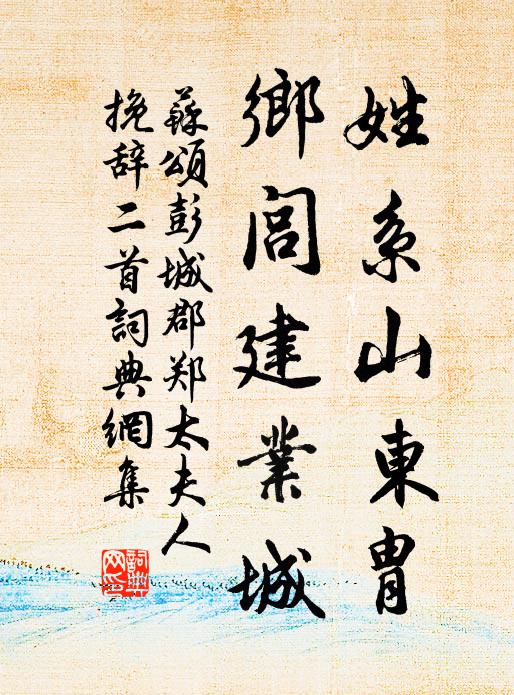 姓系山東胄
鄉閭建業城
蘇頌彭城郡郑太夫人
挽辞二首詞典網集